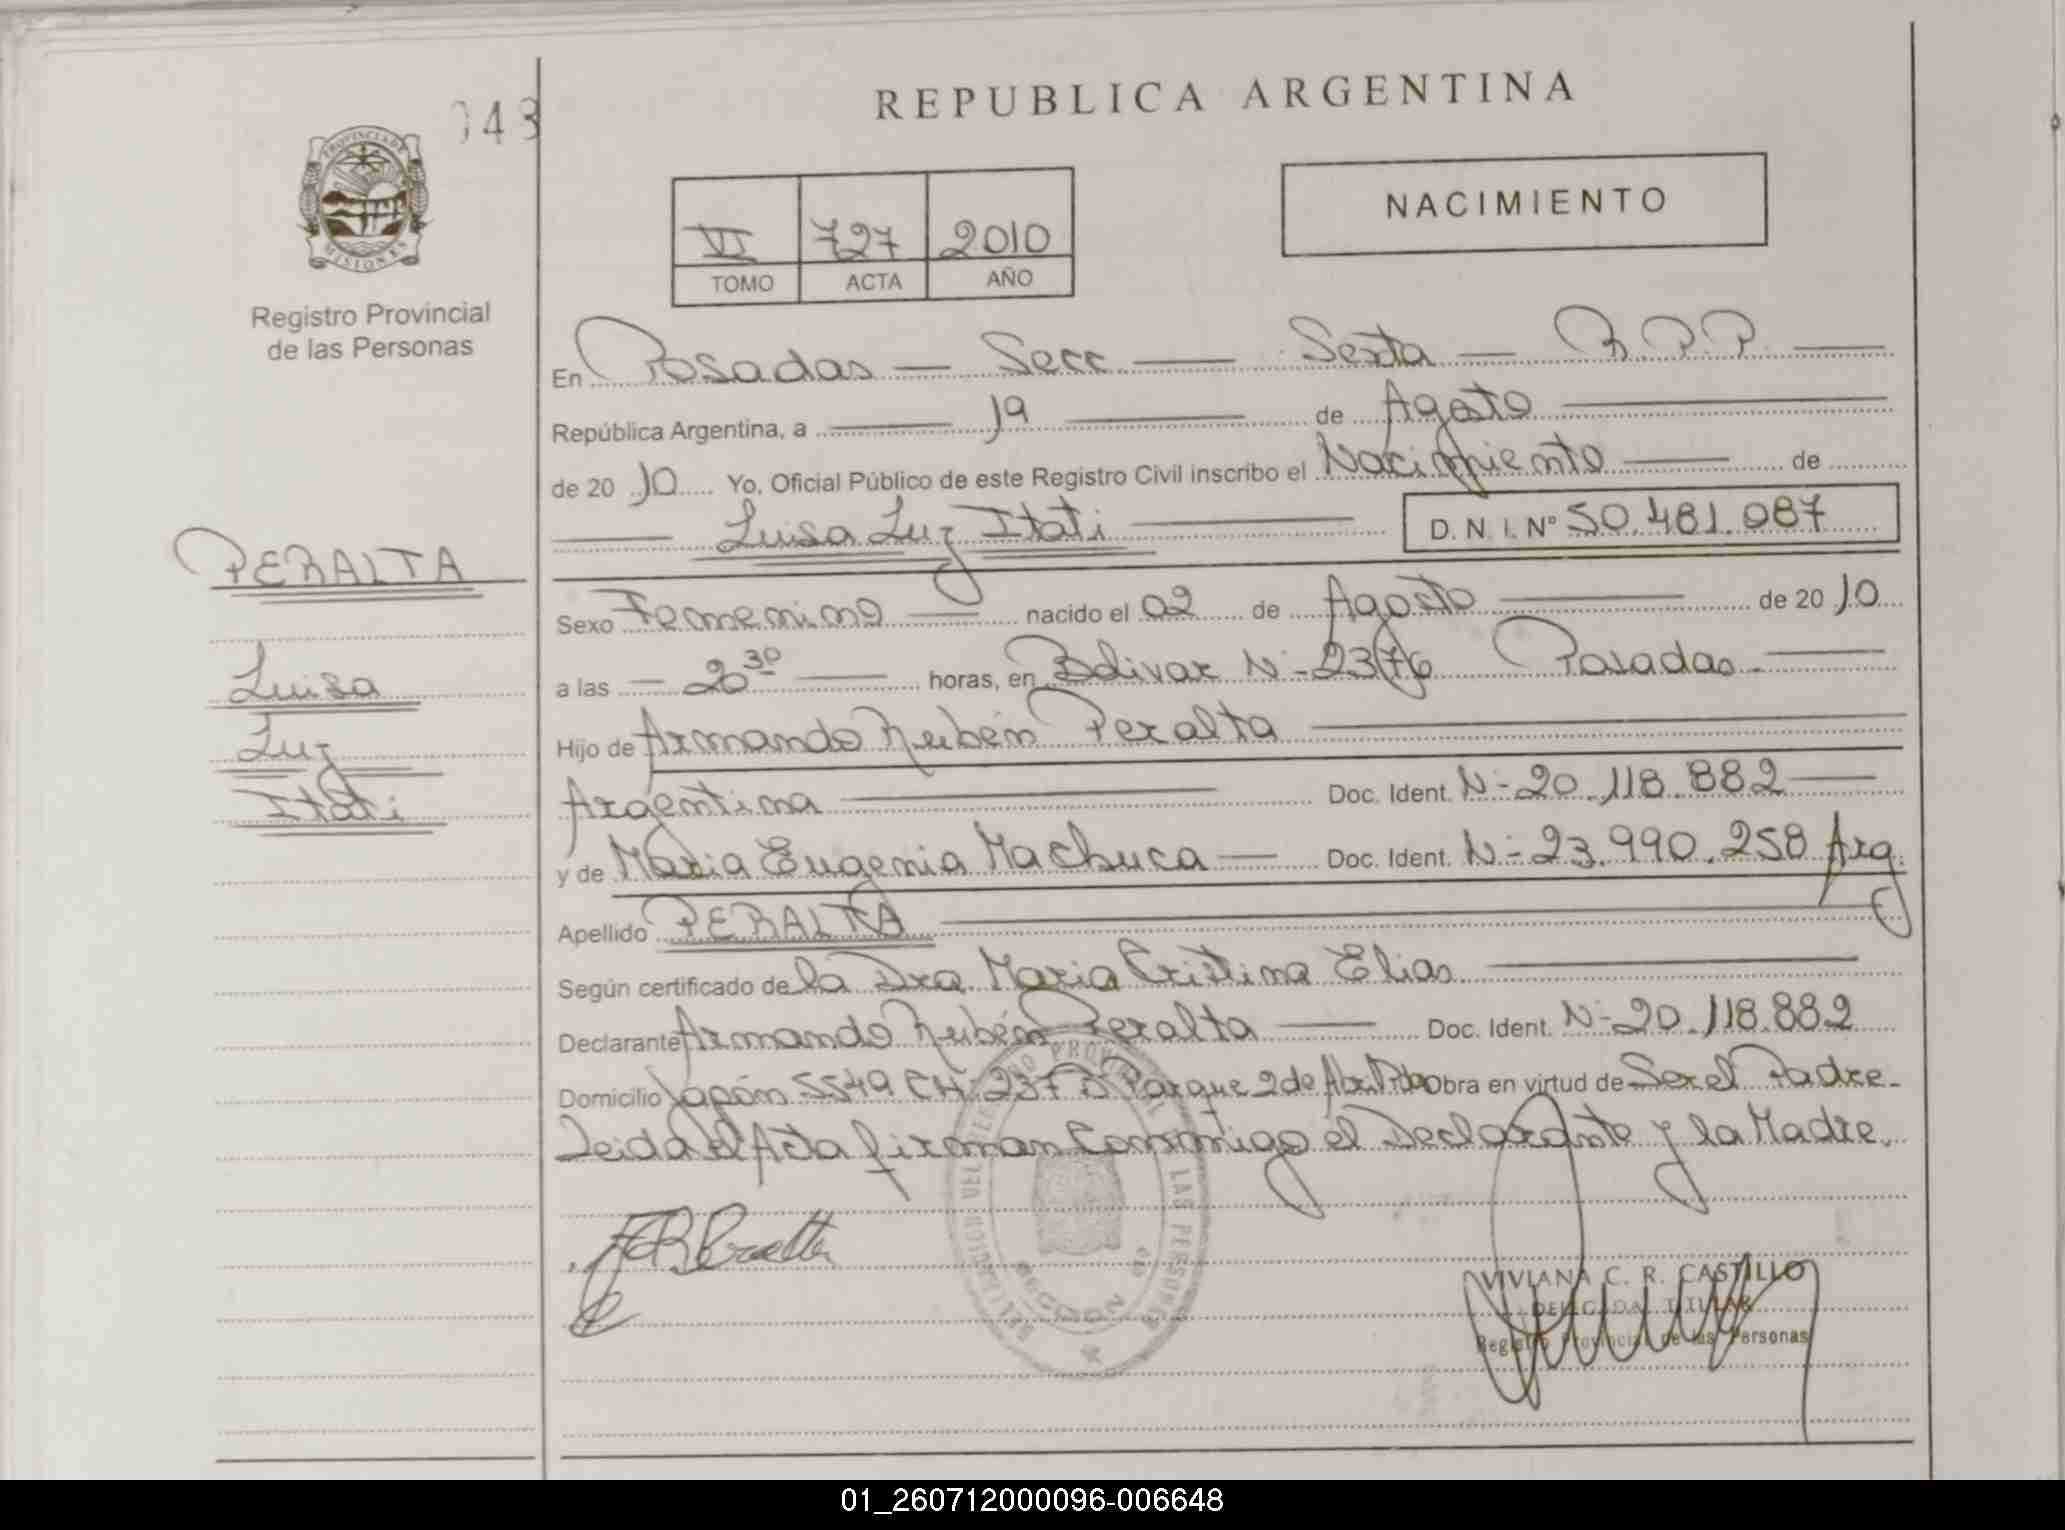 043
REPUBLICA ARGENTINA
PROVINCIA DE
MISIONES
Registro Provincial
de las Personas
VI 727 2010
TOMO ACTA AÑO
NACIMIENTO
En Posadas — Secc — Sexta — R.P.P. —
República Argentina, a — 19 — de Agosto —
de 20 10 Yo, Oficial Público de este Registro Civil inscribo el Nacimiento — de
— Luisa Luz Itati — D.N.I. Nº 50.481.087
PERALTA
Luisa
Luz
Itati
Sexo Femenino — nacido el 02 de Agosto — de 20 10
a las — 20 30 — horas, en Bolivar N- 2376 Posadas —
Hijo de Armando Rubén Peralta —
Argentina — Doc. Ident. N- 20.118.882 —
y de Maria Eugenia Machuca — Doc. Ident. N- 23.990.258 Arg.
Apellido PERALTA —
Según certificado de la Dra. Maria Cristina Elias —
Declarante Armando Rubén Peralta — Doc. Ident. N- 20.118.882
Domicilio Japón 5549 CH: 237 Bº Parque 2 de Abril Obra en virtud de Ser el Padre.
Leida el Acta firman Conmigo el Declarante y la Madre.
VIVIANA C. R. CASTILLO
DELEGADA TITULAR
Registro Provincial de las Personas
01_260712000096-006648